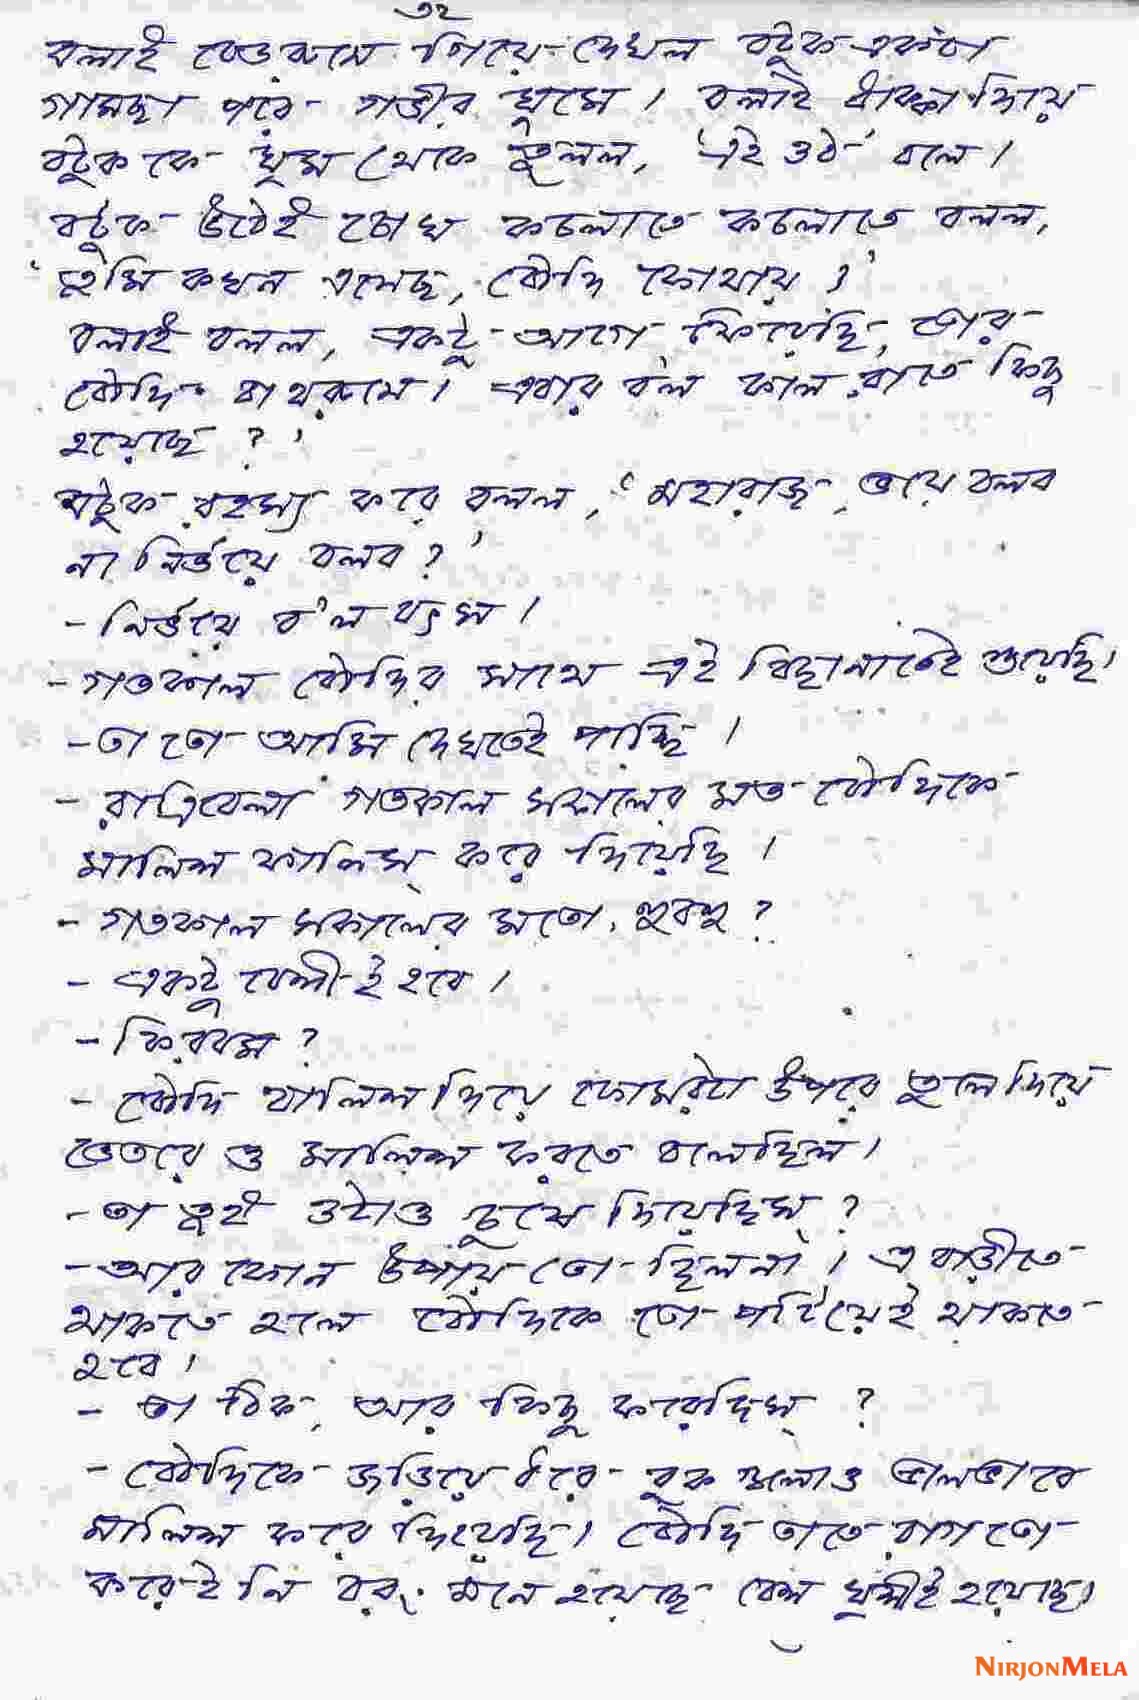 ৩২
বলাই বেডরুমে গিয়ে দেখল বটুক একটা
গামছা পরে গভীর ঘুমে। বলাই ধাক্কা দিয়ে
বটুক কে ঘুম থেকে তুলল, 'এই ওঠ' বলে।
বটুক উঠেই চোখ কচলাতে কচলাতে বলল,
'তুমি কখন এসেছ, বৌদি কোথায়?'
বলাই বলল, একটু আগে ফিরেছি, তোর
বৌদি বাথরুমে। এবার বল কাল রাতে কিছু
হয়েছে?'
বটুক রহস্য করে বলল, 'মহারাজ, ভয়ে বলব
না নির্ভয়ে বলব?'
- নির্ভয়ে ব'ল বৎস।
- গতকাল বৌদির সাথে এই বিছানাতেই শুয়েছি।
- তা তো আমি দেখতেই পাচ্ছি।
- রাত্রিবেলা গতকাল সকালের মত বৌদিকে
মালিশ ফালিস্ করে দিয়েছি।
- গতকাল সকালের মতো, হুবহু?
- একটু বেশী-ই হবে।
- কিরকম?
- বৌদি বালিশ দিয়ে কোমরটা উপরে তুলে দিয়ে
ভেতরে ও মালিশ করতে বলেছিল।
- তা তুই ওটাও চুষে দিয়েছিস্?
- আর কোন উপায় তো ছিলনা। এ বাড়ীতে
থাকতে হলে বৌদিকে তো পটিয়েই থাকতে
হবে।
- তা ঠিক, আর কিছু করেছিস্?
- বৌদিকে জড়িয়ে ধরে বুক গুলোও ভালভাবে
মালিশ করে দিয়েছি। বৌদি তাতে রাগ তো
করে-ই নি বরং মনে হয়েছে বেশ খুশীই হয়েছে।
NIRJONMELA